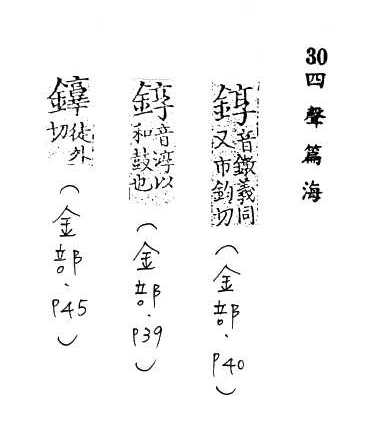 30四聲篇海
錞
音鐓義同
又市鈞切
(金部.P40)
錞
音淳以
和鼓也
(金部.P39)
徒外
切
(金部.P45)